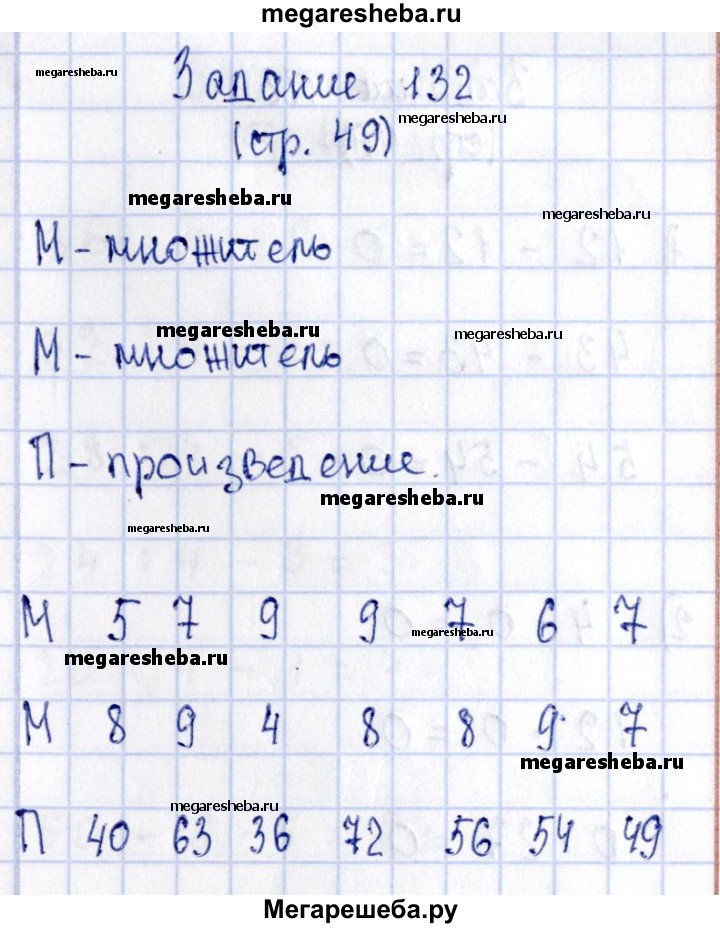 megaresheba.ru
megaresheba.ru
Задание 132
megaresheba.ru
(стр. 49)
megaresheba.ru
megaresheba.ru
М - множитель
megaresheba.ru
megaresheba.ru
М - множитель
П - произведение.
megaresheba.ru
megaresheba.ru
М 5 7 9 9 7 6 7
megaresheba.ru
megaresheba.ru
М 8 9 4 8 8 9 7
megaresheba.ru
megaresheba.ru
П 40 63 36 72 56 54 49
Мегарешеба.ру